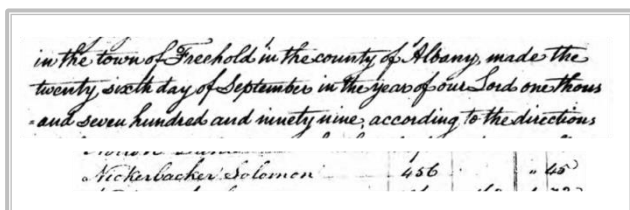 in the town of Freehold in the county of Albany, made the
twenty sixth day of September in the year of our Lord one thous
=and seven hundred and ninety nine, according to the directions
Nickerbacker Solomon 456 " 45